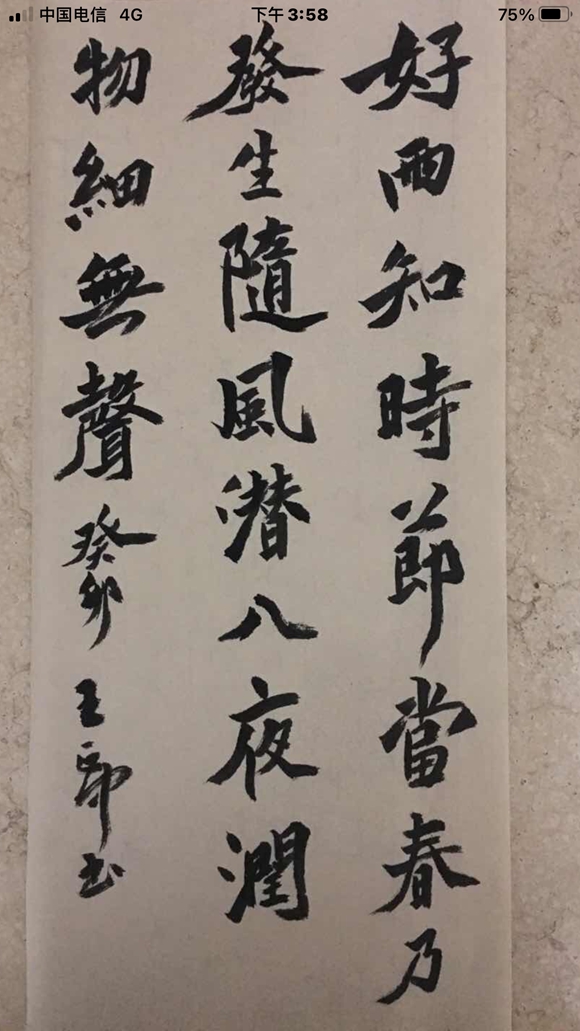 中国电信 4G 下午3:58 75%
好雨知時節當春乃
發生隨風潜八夜潤
物細無聲 癸卯 王 书